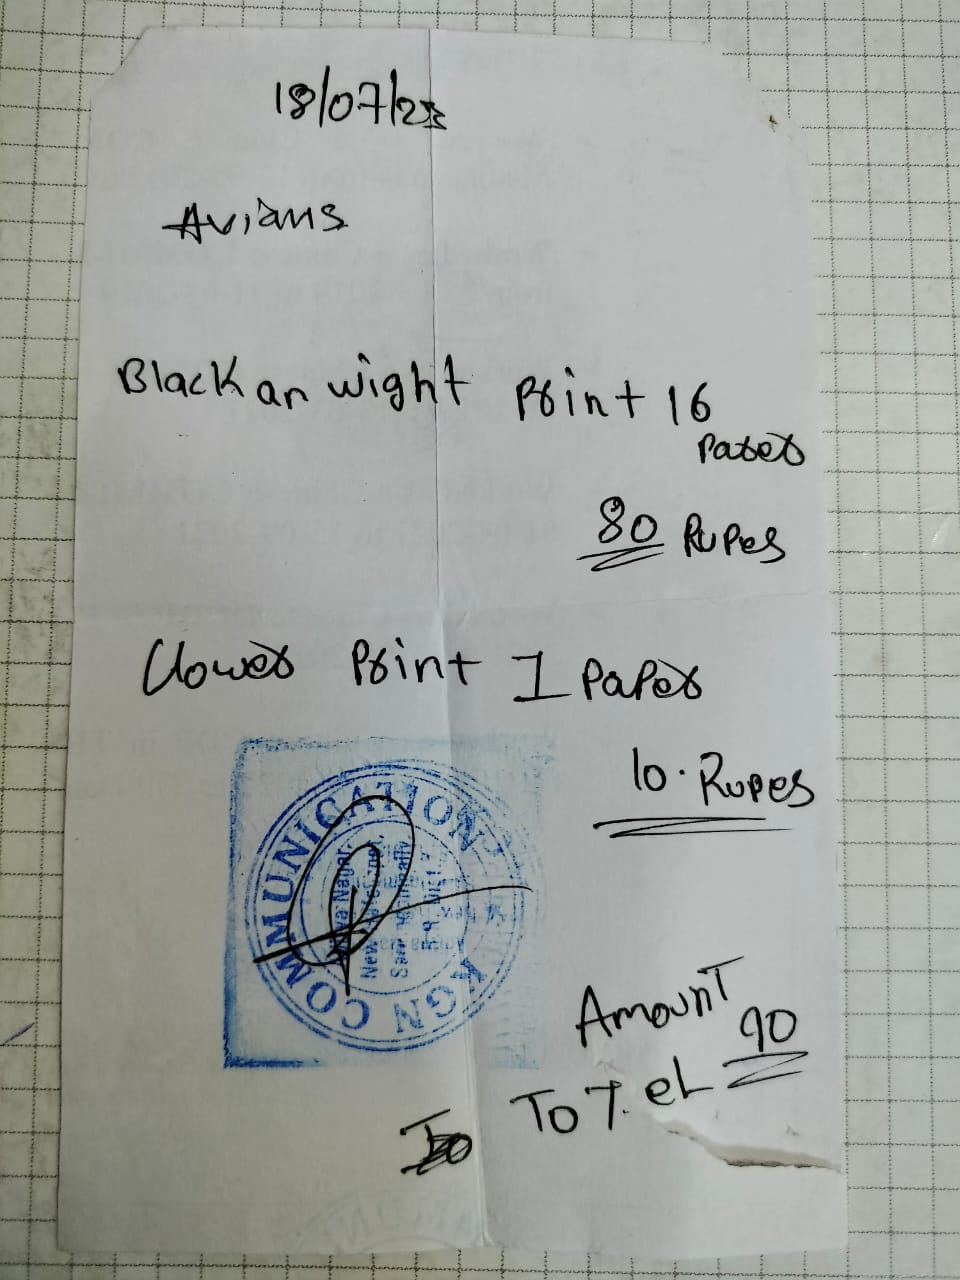 18/07/23
Avians
Black an wight Print 16
Paper
80 Rupes
Clower Print 1 Paper
10. Rupes
KGN COMMUNICATION
Amount
Totel 90